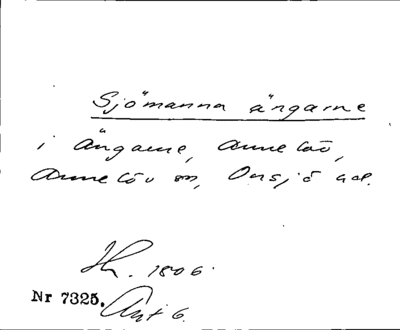 Sjömanna ängarne
i Ängarne, Annelöv,
Annelöv sn, Onsjö hd.
H. 1806.
Nr 7325. Akt 6.